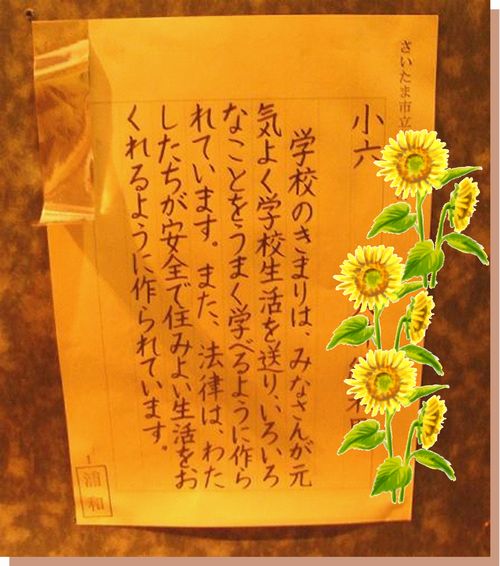 さいたま市立
小六
学校のきまりは、みなさんが元
気よく学校生活を送り、いろいろ
なことをうまく学べるように作ら
れています。また、法律は、わた
したちが安全で住みよい生活をお
くれるように作られています。
1
浦和